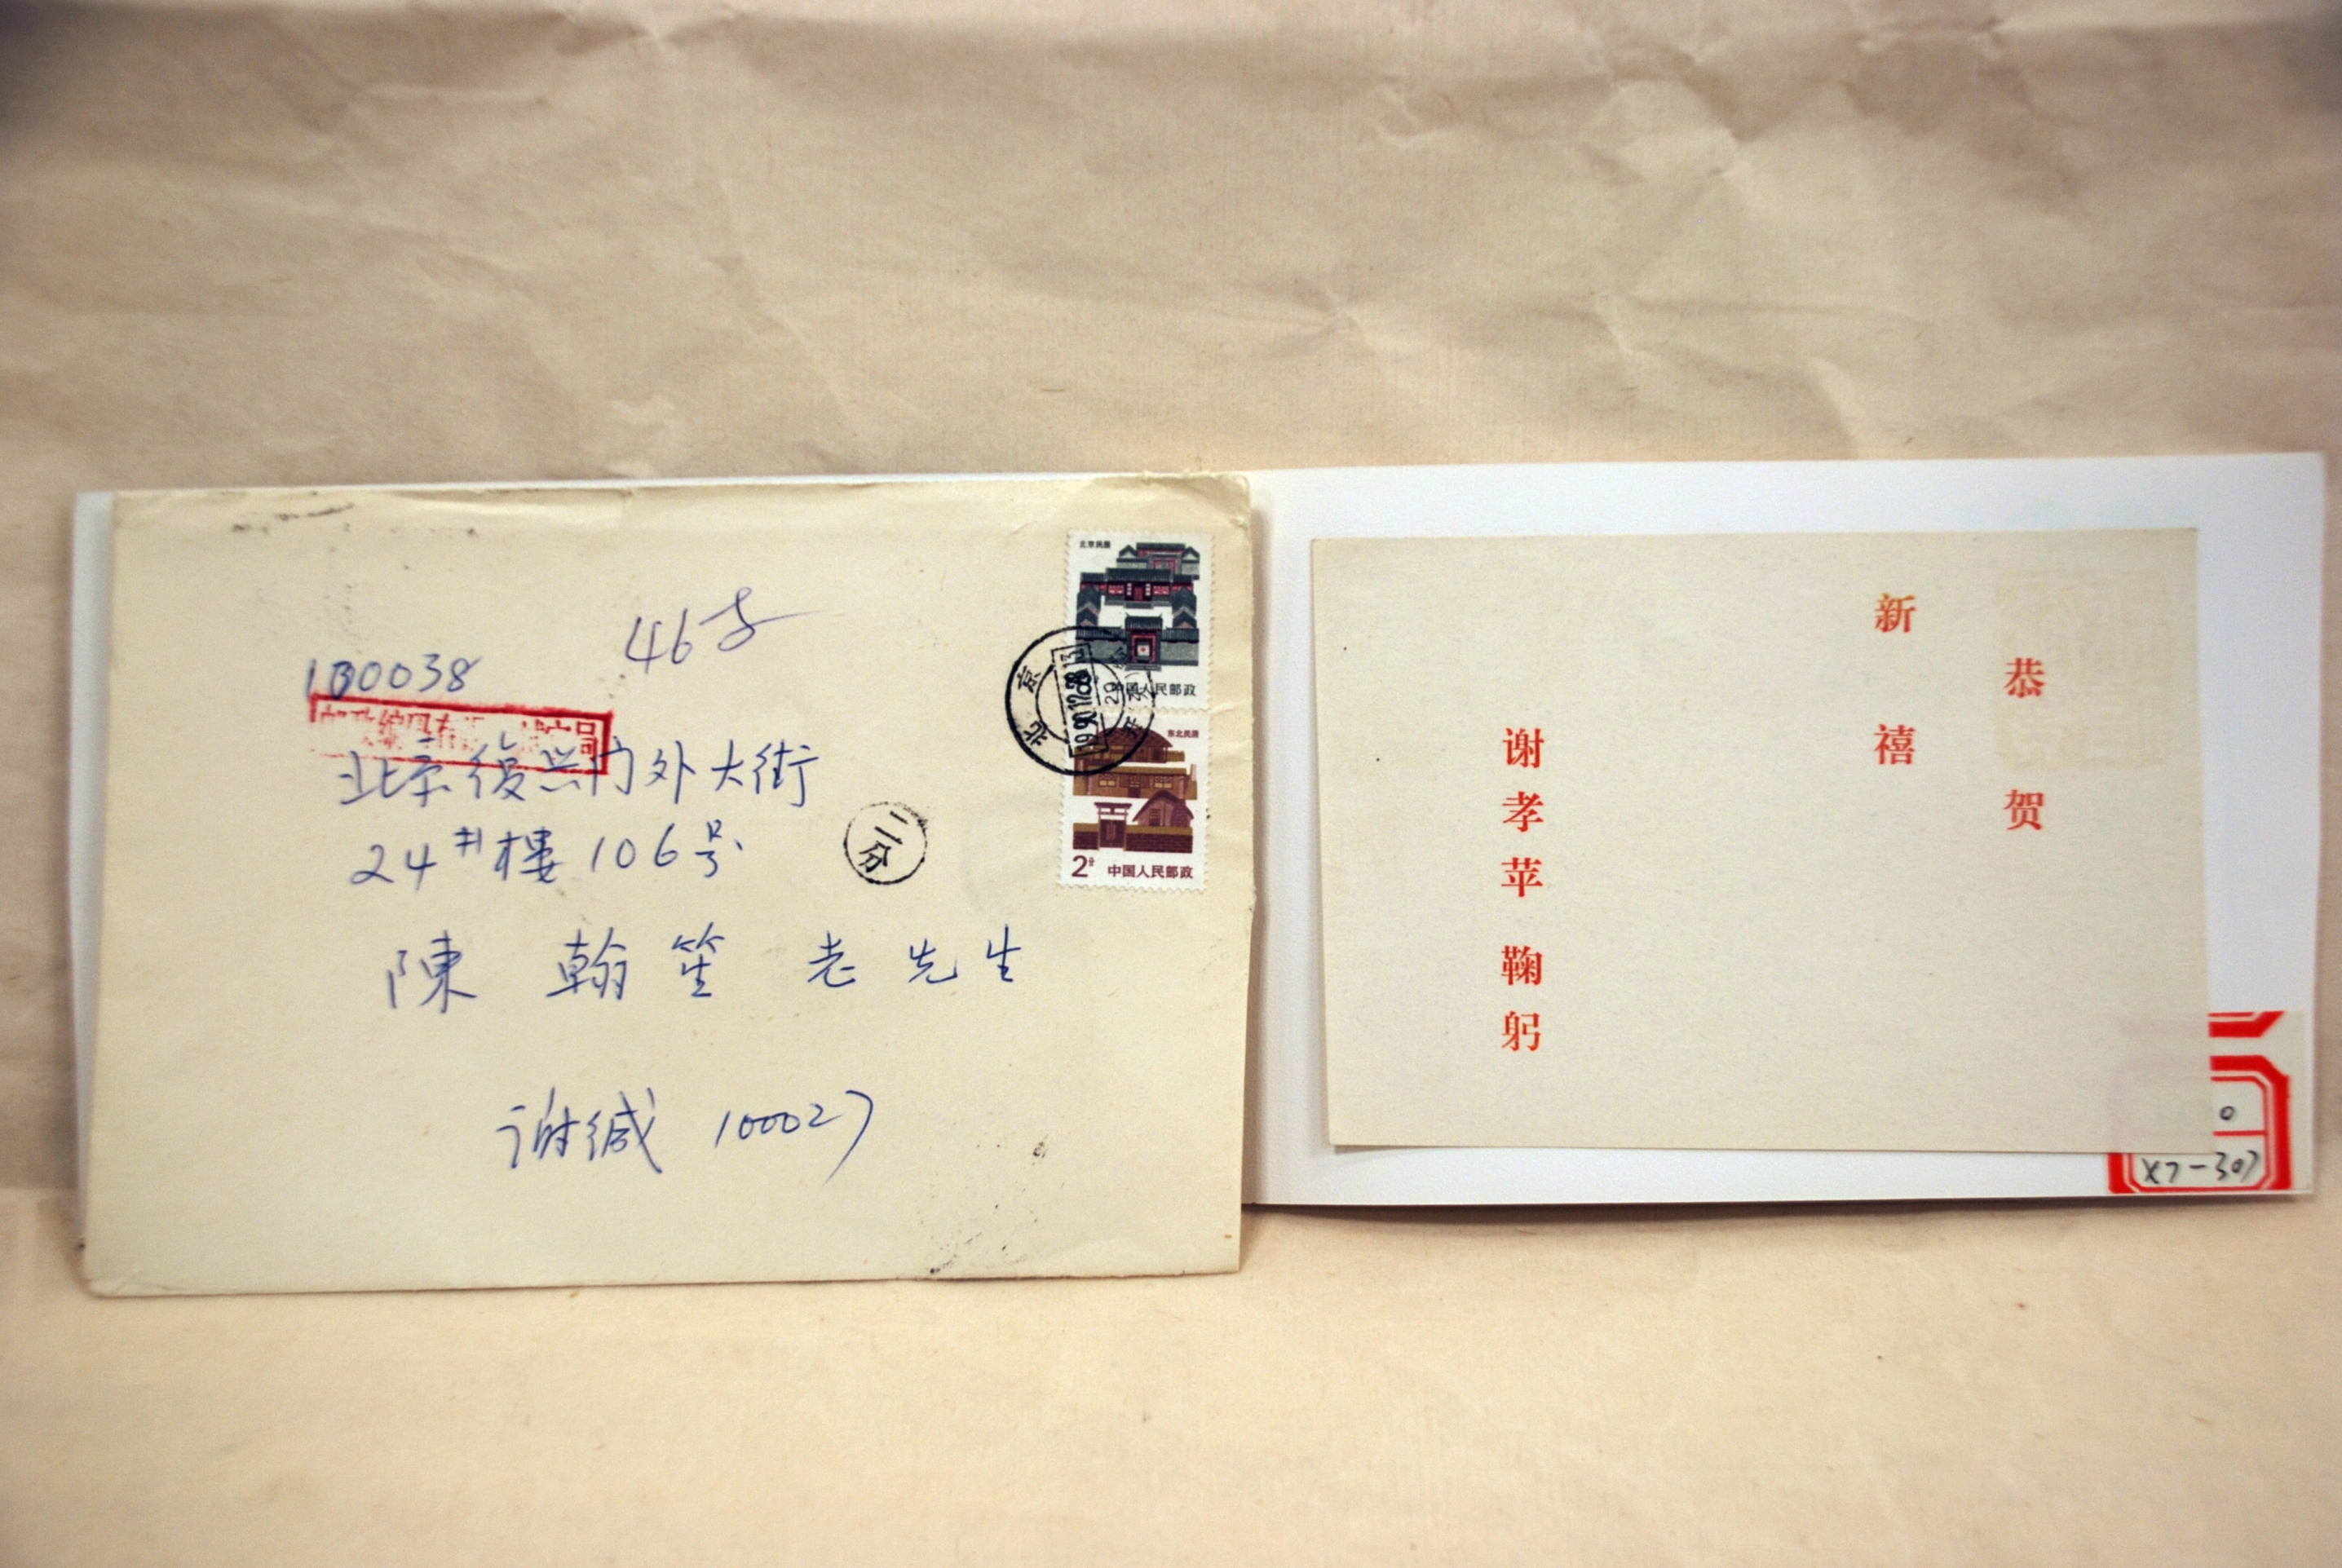 46
100038
北京復兴门外大街
24#楼106号
陳翰笙老先生
谢缄 100027
二分
北京民居
中国人民邮政
北京
1990.12.28.13
东北民居
2分 中国人民邮政
恭贺
新禧
谢孝苹 鞠躬
0
X7-307